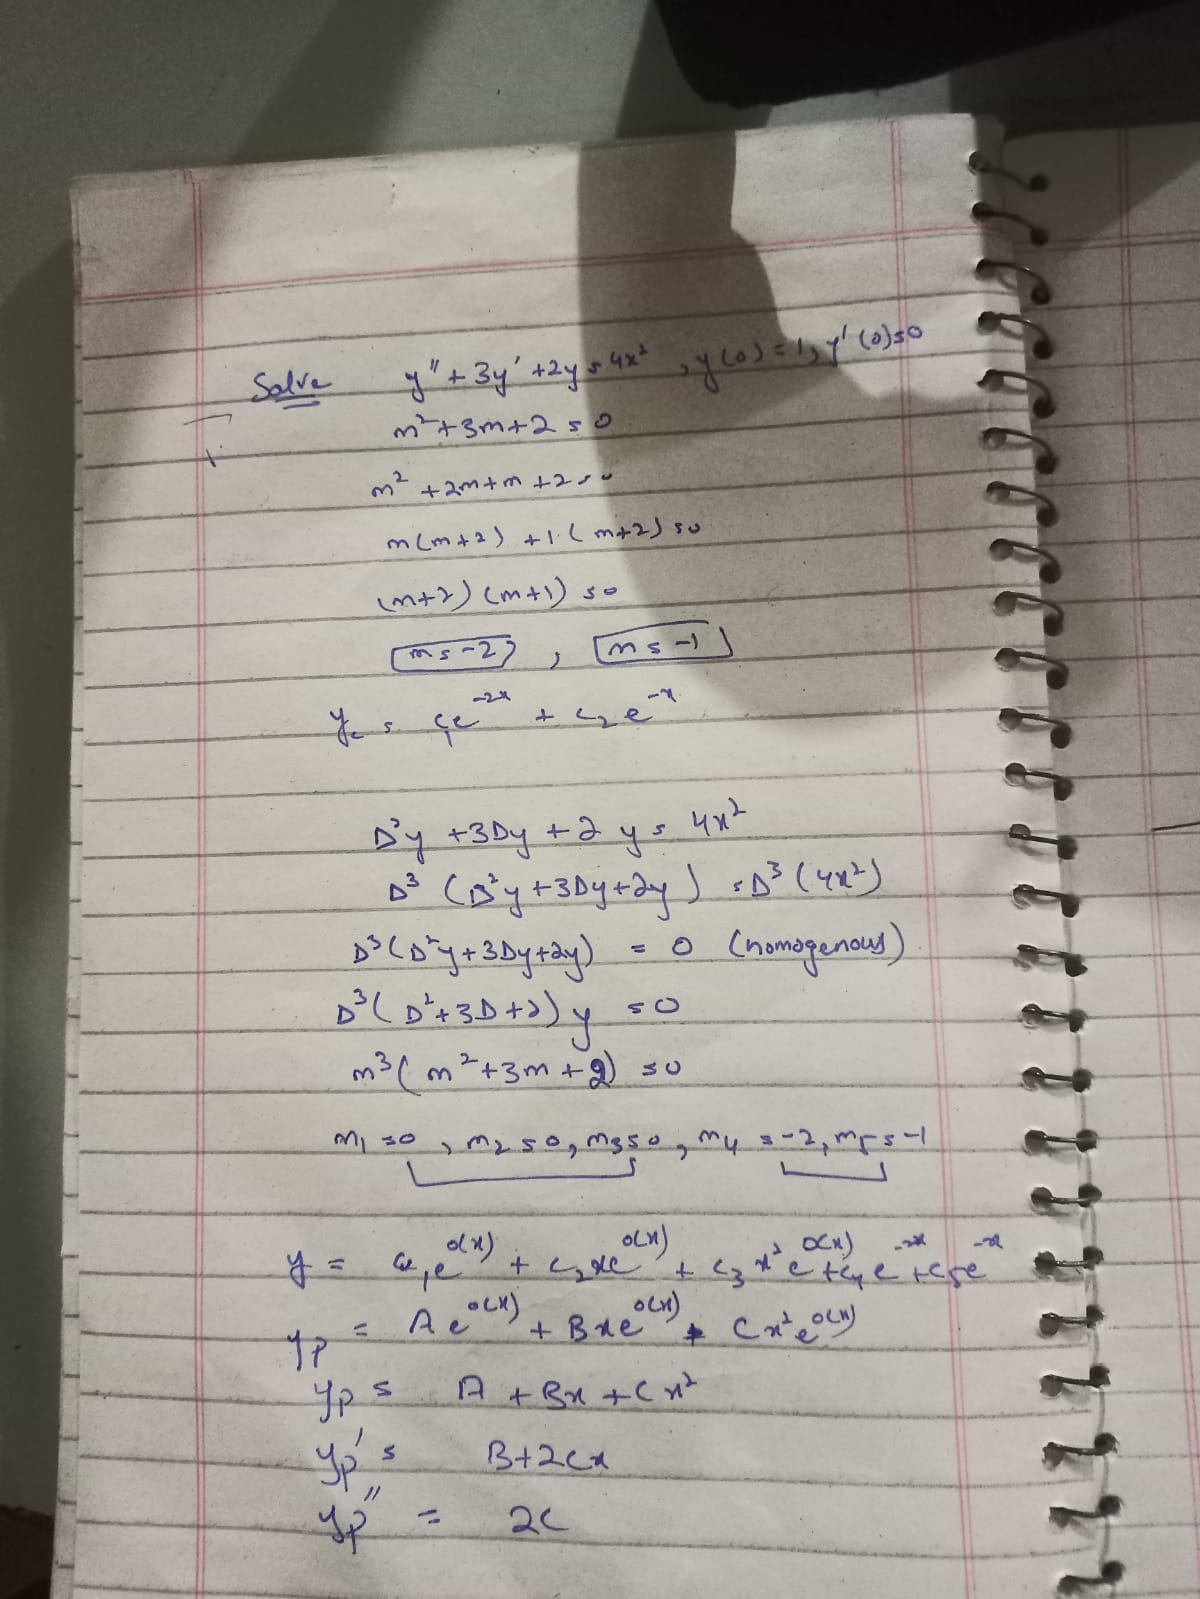 Solve y'' + 3y' + 2y = 4x², y(0) = 1, y'(0) = 0
m² + 3m + 2 = 0
m² + 2m + m + 2 = 0
m(m+2) + 1(m+2) = 0
(m+2)(m+1) = 0
m = -2, m = -1
y_c = c₁e^{-2x} + c₂e^{-x}
D²y + 3Dy + 2y = 4x²
D³(D²y + 3Dy + 2y) = D³(4x²)
D³(D²y + 3Dy + 2y) = 0 (homogenous)
D³(D² + 3D + 2)y = 0
m³(m² + 3m + 2) = 0
m₁ = 0, m₂ = 0, m₃ = 0, m₄ = -2, m₅ = -1
y = c₁e^{0(x)} + c₂xe^{0(x)} + c₃x²e^{0(x)} + c₄e^{-2x} + c₅e^{-x}
y_p = Ae^{0(x)} + Bxe^{0(x)} + Cx²e^{0(x)}
y_p = A + Bx + Cx²
y_p' = B + 2Cx
y_p'' = 2C